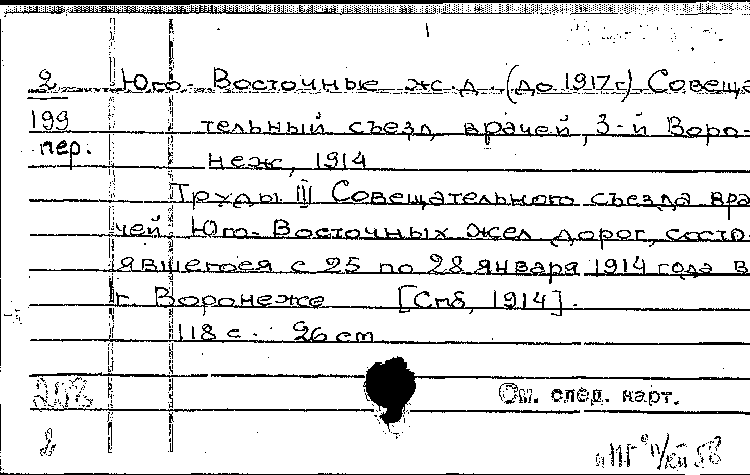 2 Юго-Восточные ж.д. (до 1917г) Совеща-
199 тельный съезд врачей, 3-й Воро-
пер. неж, 1914
Труды III Совещательного съезда вра-
чей Юго-Восточных жел дорог, состо-
явшегося с 25 по 28 января 1914 года в
г. Воронеже [Спб, 1914].
118 с. 26 cm
См. след. карт.